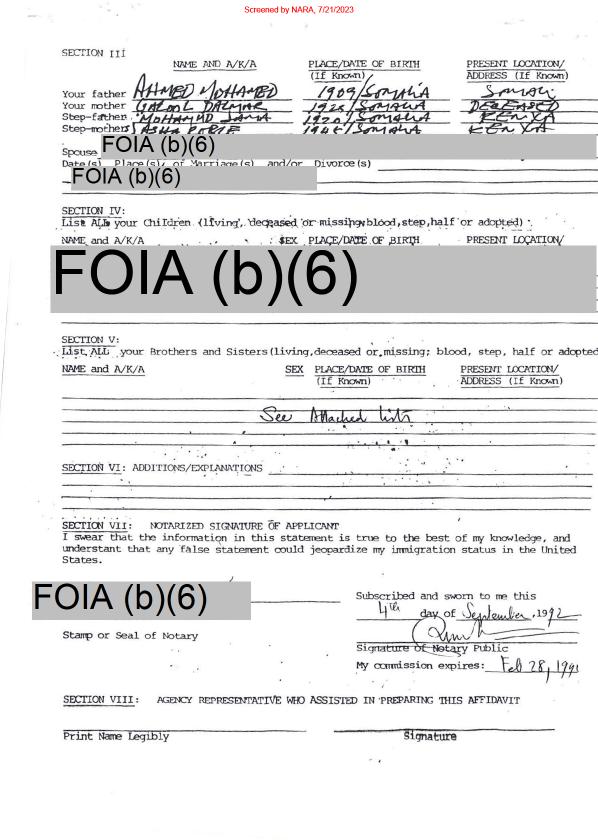 Screened by NARA, 7/21/2023
SECTION III
NAME AND A/K/A PLACE/DATE OF BIRTH PRESENT LOCATION/
(If Known) ADDRESS (If Known)
Your father AHMED MOHAMED 1909/SOMALIA SOMALI
Your mother DALMAR SOMALIA DECEASED
Step-father MOHAMUD JAMA 1920/SOMALIA KENYA
Step-mothers ASHA 1945/SOMALIA KENYA
Spouse FOIA (b)(6)
Date(s) Place(s) of Marriage(s) and/or Divorce(s)
FOIA (b)(6)
SECTION IV:
List ALL your Children (living, deceased or missing, blood, step, half or adopted)
NAME and A/K/A SEX PLACE/DATE OF BIRTH PRESENT LOCATION/
FOIA (b)(6)
SECTION V:
List ALL your Brothers and Sisters (living, deceased or missing; blood, step, half or adopted
NAME and A/K/A SEX PLACE/DATE OF BIRTH PRESENT LOCATION/
(If Known) ADDRESS (If Known)
See Attached lists
SECTION VI: ADDITIONS/EXPLANATIONS
SECTION VII: NOTARIZED SIGNATURE OF APPLICANT
I swear that the information in this statement is true to the best of my knowledge, and
understant that any false statement could jeopardize my immigration status in the United
States.
FOIA (b)(6)
Subscribed and sworn to me this
4th day of September, 1992
Stamp or Seal of Notary
Signature of Notary Public
My commission expires: Feb 28, 199
SECTION VIII: AGENCY REPRESENTATIVE WHO ASSISTED IN PREPARING THIS AFFIDAVIT
Print Name Legibly Signature